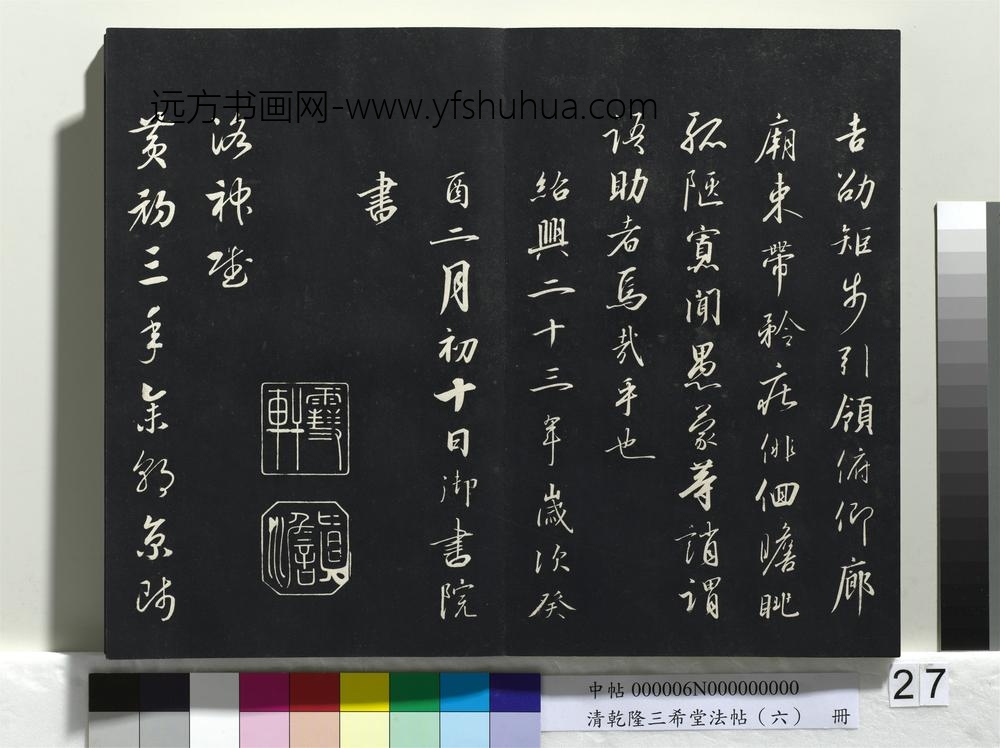 吉劭矩步引領俯仰廊
廟束帶矜莊俳佪瞻眺
孤陋寡聞愚蒙等誚謂
語助者焉哉乎也
紹興二十三年歲次癸
酉二月初十日御書院
書
洛神賦
黃初三年余朝京師
远方书画网-www.yfshuhua.com
中帖 000006N000000000
清乾隆三希堂法帖（六） 冊
27